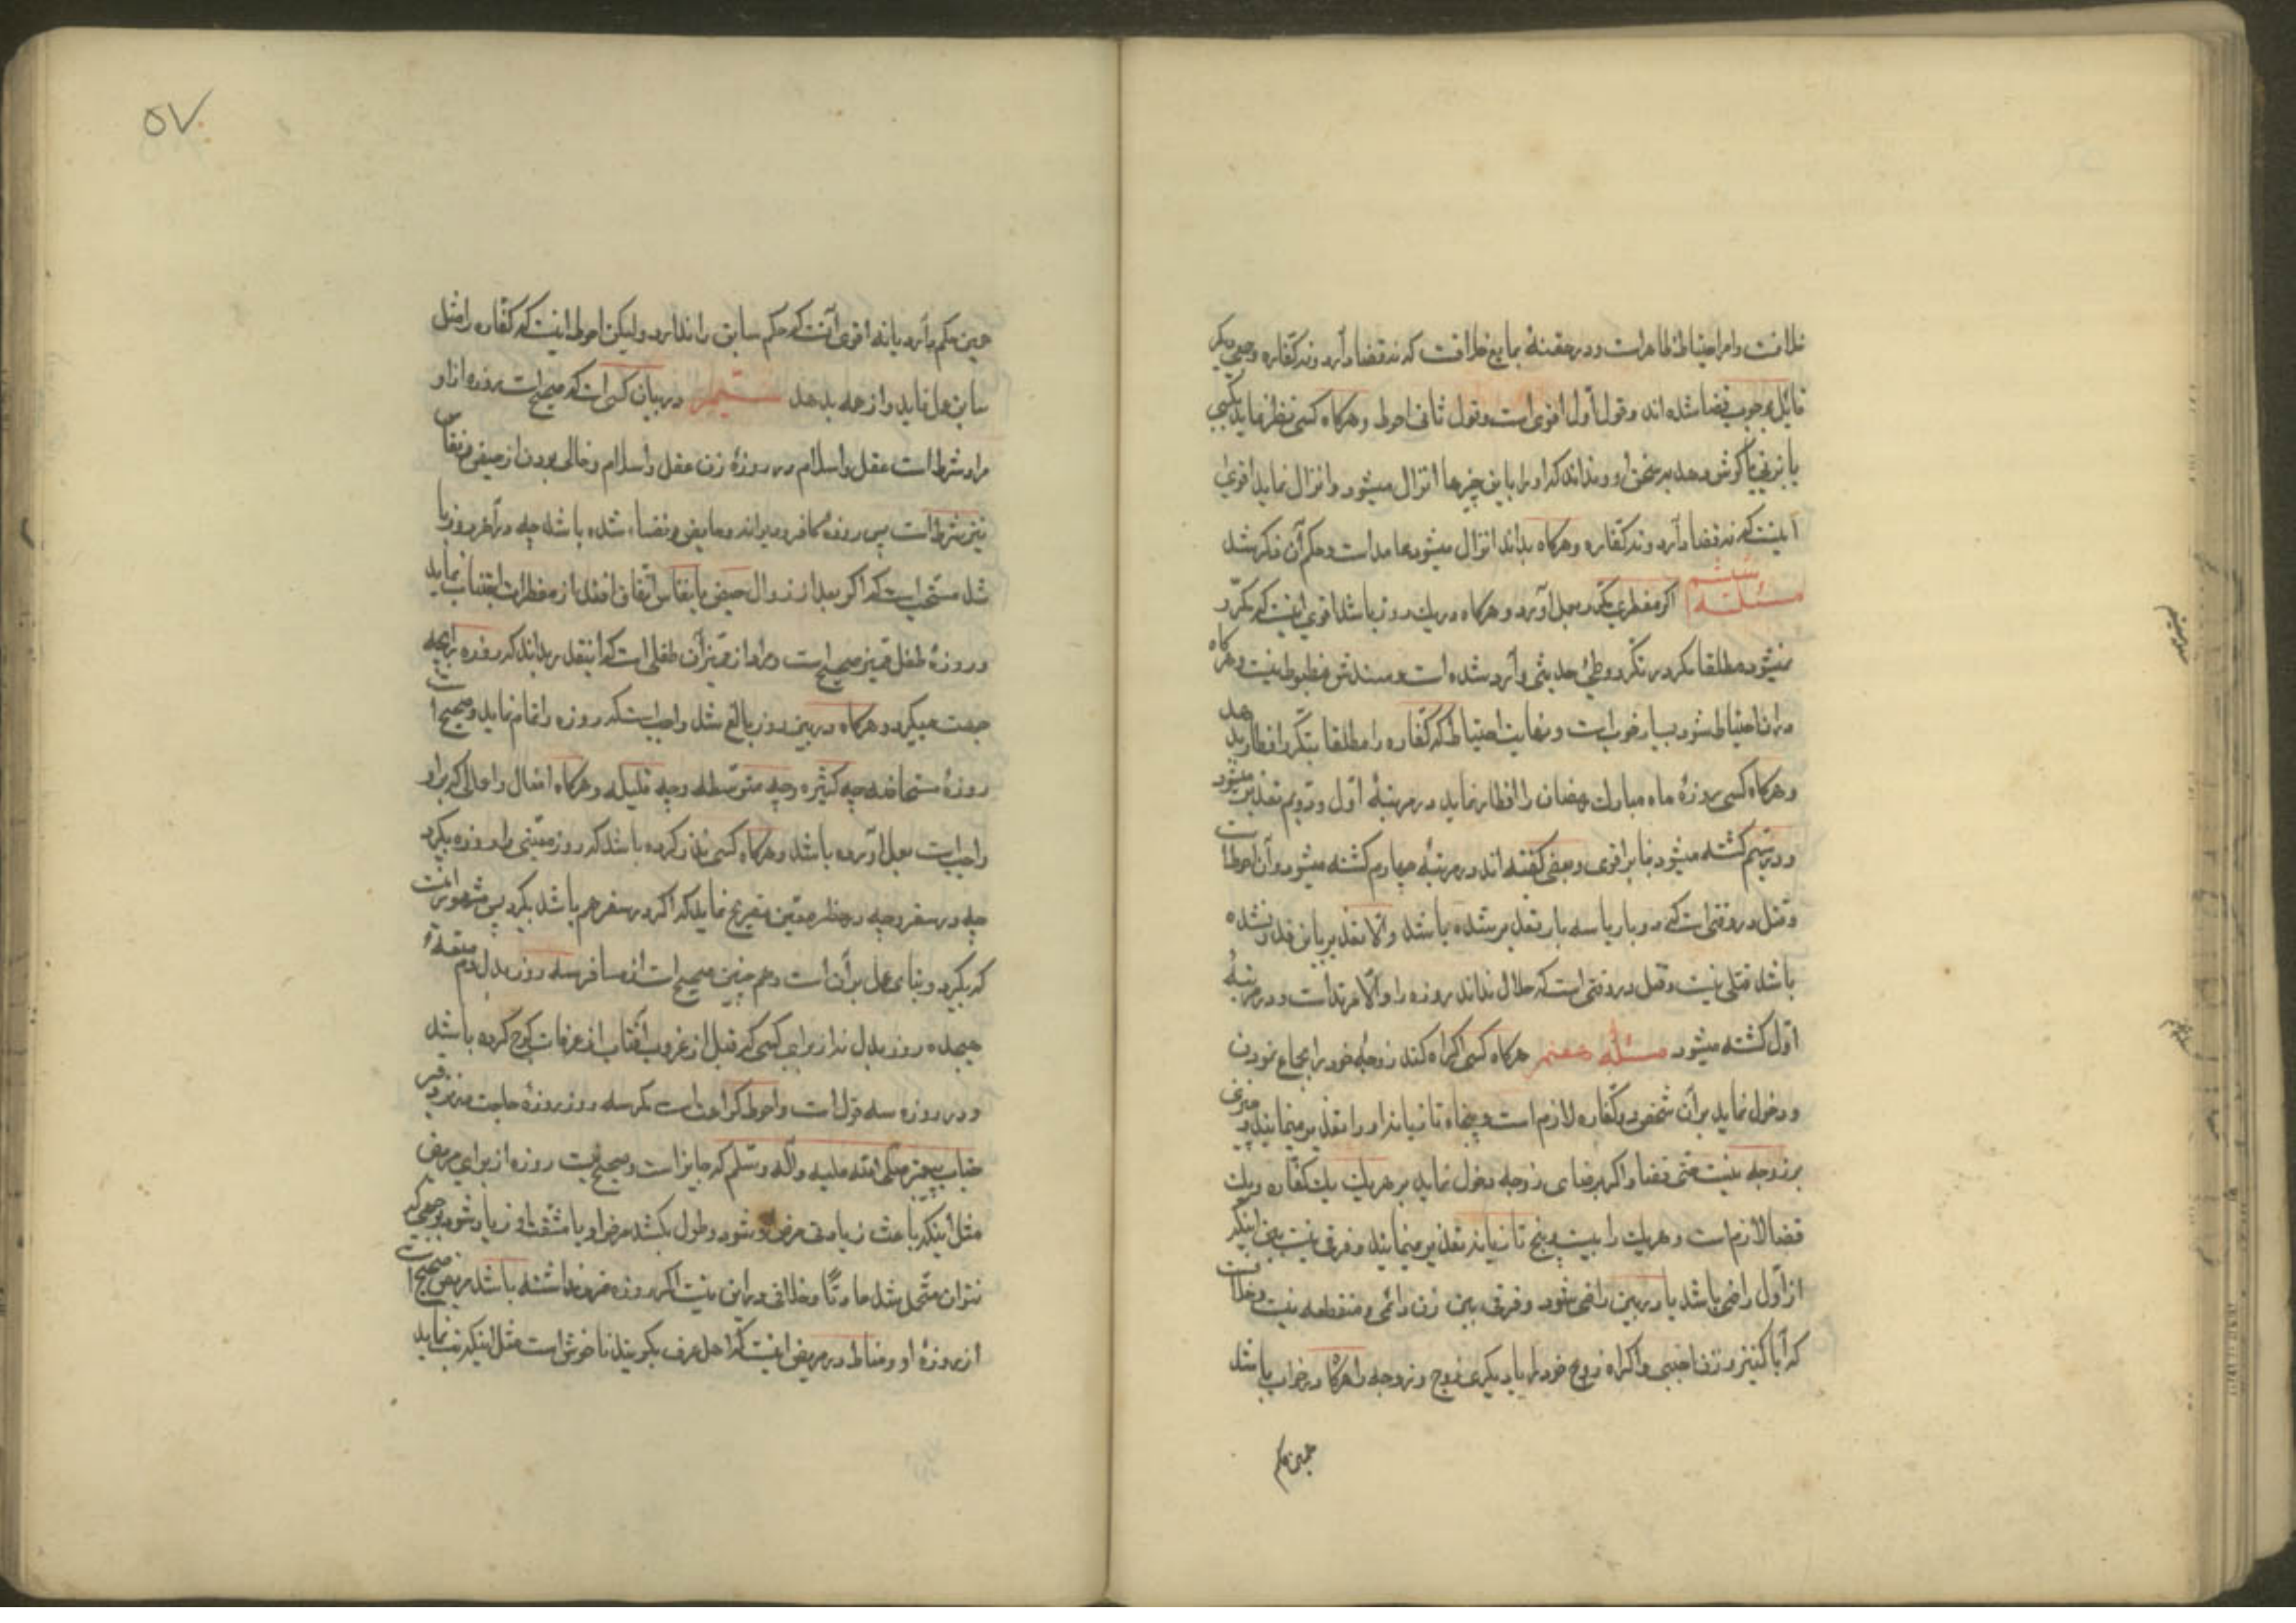 خلافست و امر احتیاط ظاهر است و در حقنهٔ بمایع خلافست که نه قضا دارد و نه کفاره و جمعی دیگر
قایل بوجوب قضا شده اند و قول اول اقوی است و قول ثانی احوط و هرگاه کسی نظر نماید بکسی
یا بزنی یا گوش دهد بر سخن او و نداند که او را باین چیزها انزال میشود و انزال نماید اقوی
آنیست که نه قضا دارد و نه کفاره و هرگاه بداند انزال میشود عامد است و حکم آن ذکر شد
مسئله ششم اگر مفطری مکرر بعمل آورد و هرگاه در یک روز باشد اقوی اینست که مکرر
نمیشود مطلقا مگر در تکرر وطی حدیثی وارد شده است و سندش مضبوط نیست و هرگاه
در ان احتیاط شود بسیار خوبست و نهایت احتیاط که کفاره را مطلقا بتکرر افطار بدهد
و هرگاه کسی روزهٔ ماه مبارک رمضان را افطار نماید در مرتبهٔ اول و دویم تعذیر میشود
و در سیم کشته میشود بنابر اقوی و بعضی گفته اند در مرتبهٔ چهارم کشته میشود و آن احوط است
و قتل در وقتی است که دو بار یا سه بار تعذیر شده باشد و الا تعذیر باین قدر نشده
باشد قتلی نیست و قتل در وقتی است که حلال نداند روزه را و الا مرتد است و در مرتبهٔ
اول کشته میشود مسئله هفتم هرگاه کسی اکراه کند زوجهٔ خود را بجماع نمودن
و دخول نماید بر آن شخص دو کفاره لازم است و پنجاه تازیانه او را تعذیر مینمایند و چیزی
بر زوجه نیست حتی قضا و اگر برضای زوجه دخول نماید بر هریک یک کفاره و یک
قضا لازم است و هریک را بیست و پنج تازیانه تعذیر مینمایند و فرقی نیست بین اینکه
از اول راضی باشد یا در بین راضی شود و فرقی بین زن دائمی و منقطعه نیست و خلافست
که آیا کنیز و زن اجنبی و اکراه زوج خود را یا دیگری زوج و زوجه را هرگاه در خواب باشد
همین حکم
۵۷
همین حکم دارد یا نه اقوی آنست که حکم سابق را ندارد و لیکن احوط اینست که کفاره را مثل
سابق عمل نماید و از همه بدهد ششم در بیان کسی است که صحیح است روزه از او
مراد شرط است عقل و اسلام در روزهٔ زن عقل و اسلام و خالی بودن از حیض و نفاس
نیز شرط است پس روزهٔ کافر و دیوانه و حایض و نفساء شده باشد چه در آخر روز یا
شد مستحب است که اگر بعد از زوال حیض یا نفاس اتفاق افتد باز مفطرات اجتناب نماید
و روزهٔ طفل ممیز صحیح است و مراد از ممیز آن طفلی است که اینقدر بداند که روزه از چه
جهت میگیرد و هرگاه در بین روز بالغ شد واجب است که روزه را تمام نماید و صحیح است
روزهٔ مستحاضه چه کثیره و چه متوسطه و چه قلیله و هرگاه افعال و اعمالی که بر او
واجب است بعمل آورده باشد و هرگاه کسی نذر کرده باشد که روز معینی را روزه بگیرد
چه در سفر و چه در حضر همین تصریح نماید که اگر در سفر هم باشد بگیرد پس مشهور آنست
که بگیرد و بنای عمل بر آن است و هم چنین صحیح است از مسافر سه روز بدل دم متعه
هیجده روز بدل نداز برای کسی که قبل از غروب آفتاب از عرفات کوچ کرده باشد
و در روزه سه قول است و احوط کراهت است مگر سه روز روزهٔ حاجت در نزد قبر
جناب پیغمبر صلی الله علیه و آله و سلم که جایز است و صحیح نیست روزه از برای مریض
مثل اینکه باعث زیادتی مرض او شود و طول بکشد مرض او یا مشقت او زیاد شود بوجهی که
نتوان متحمل شد عادتا و خلافی در این نیست اگر روزه ضرر نداشته باشد مریض صحیح است
از روزهٔ او و مناط در مریض اینست که اهل عرف بگویند ناخوش است مثل اینکه تب نماید